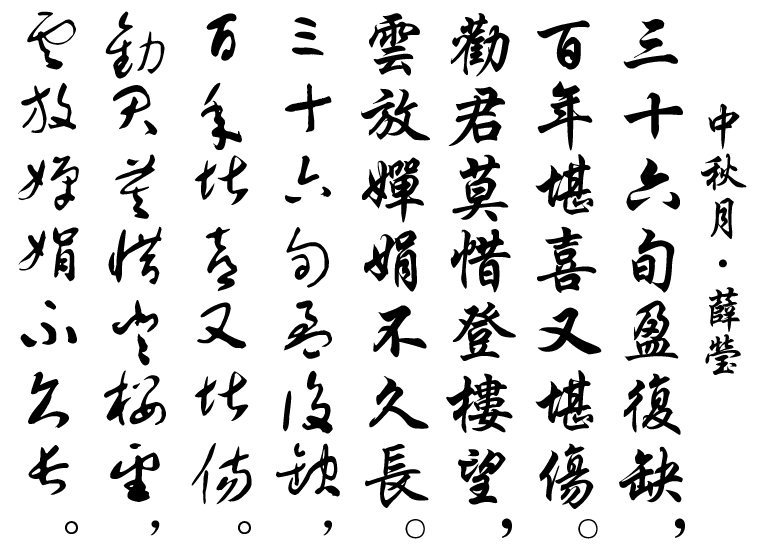 中秋月·薛瑩
三十六旬盈復缺，
百年堪喜又堪傷。
勸君莫惜登樓望，
雲放嬋娟不久長。
三十六旬盈復缺，
百年堪喜又堪傷。
勸君莫惜登樓望，
雲放嬋娟不久長。